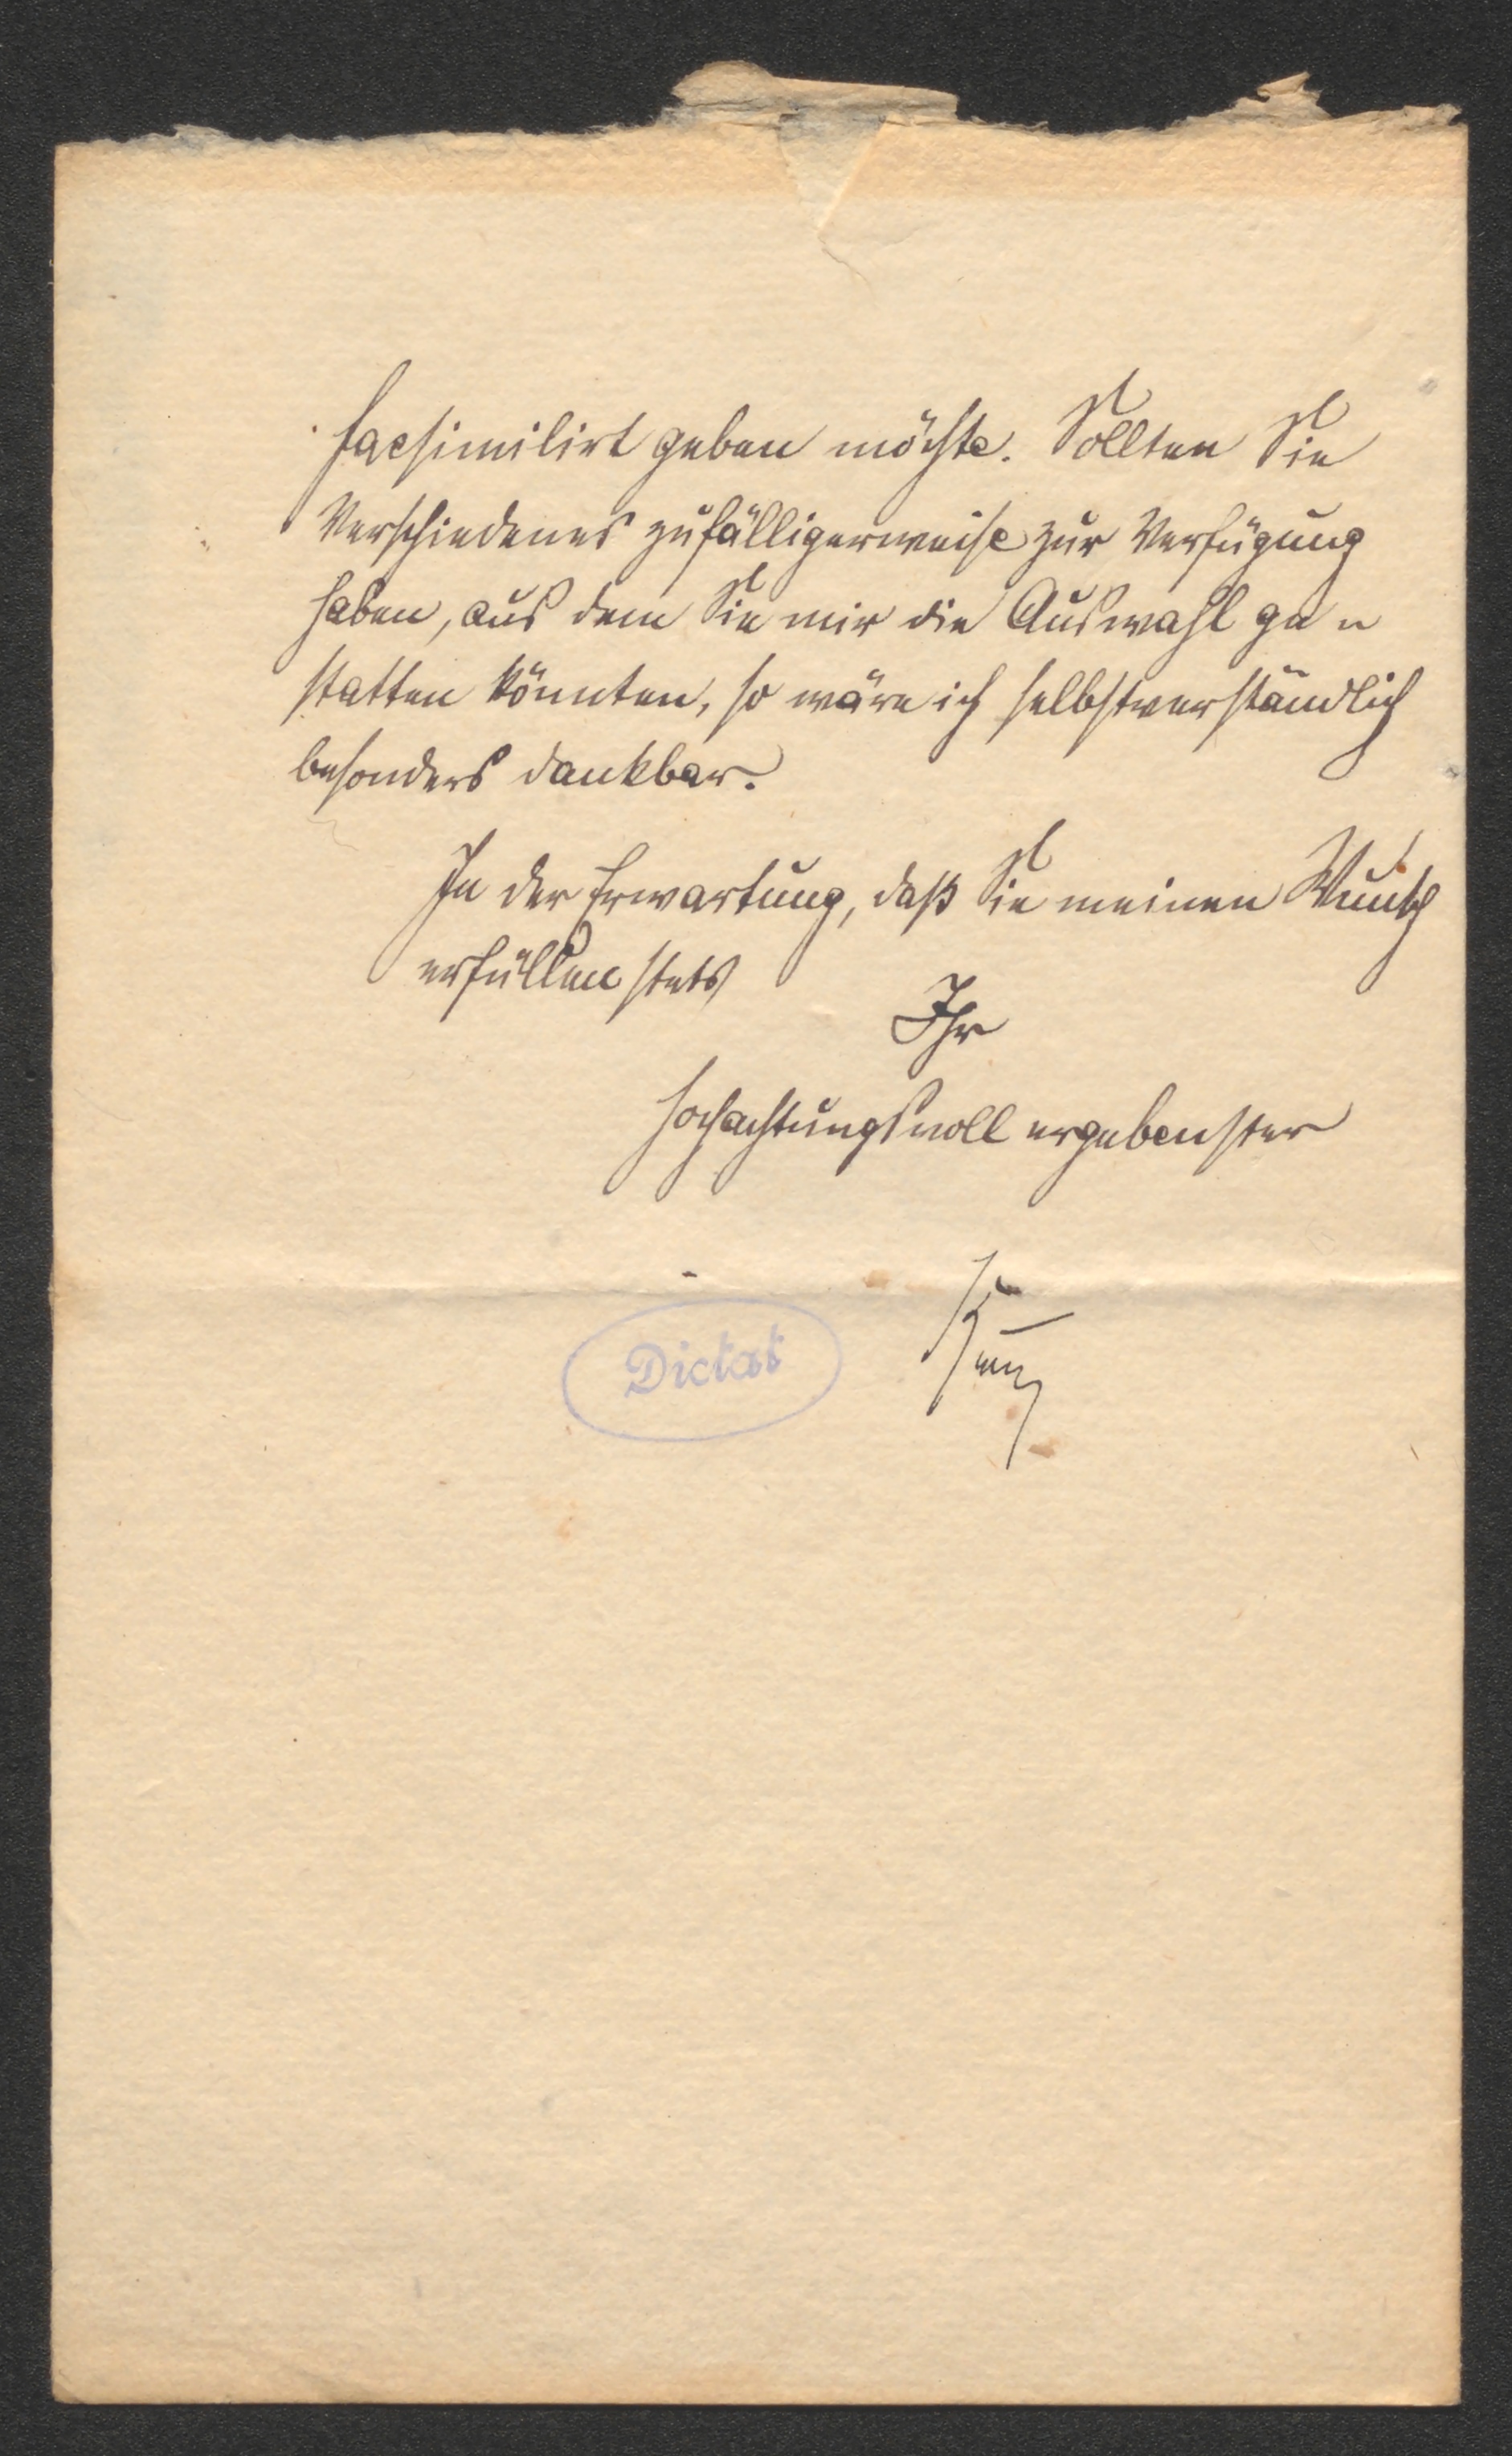 facsimilirt geben möchte. Sollten Sie
Verschiedenes zufälligerweise zur Verfügung
haben, aus dem Sie mir die Auswahl ge-
statten könnten, so wäre ich selbstverständlich
besonders dankbar.
In der Erwartung, daß Sie meinen Wunsch
erfüllen stets
Ihr
hochachtungsvoll ergebenster
Dictat